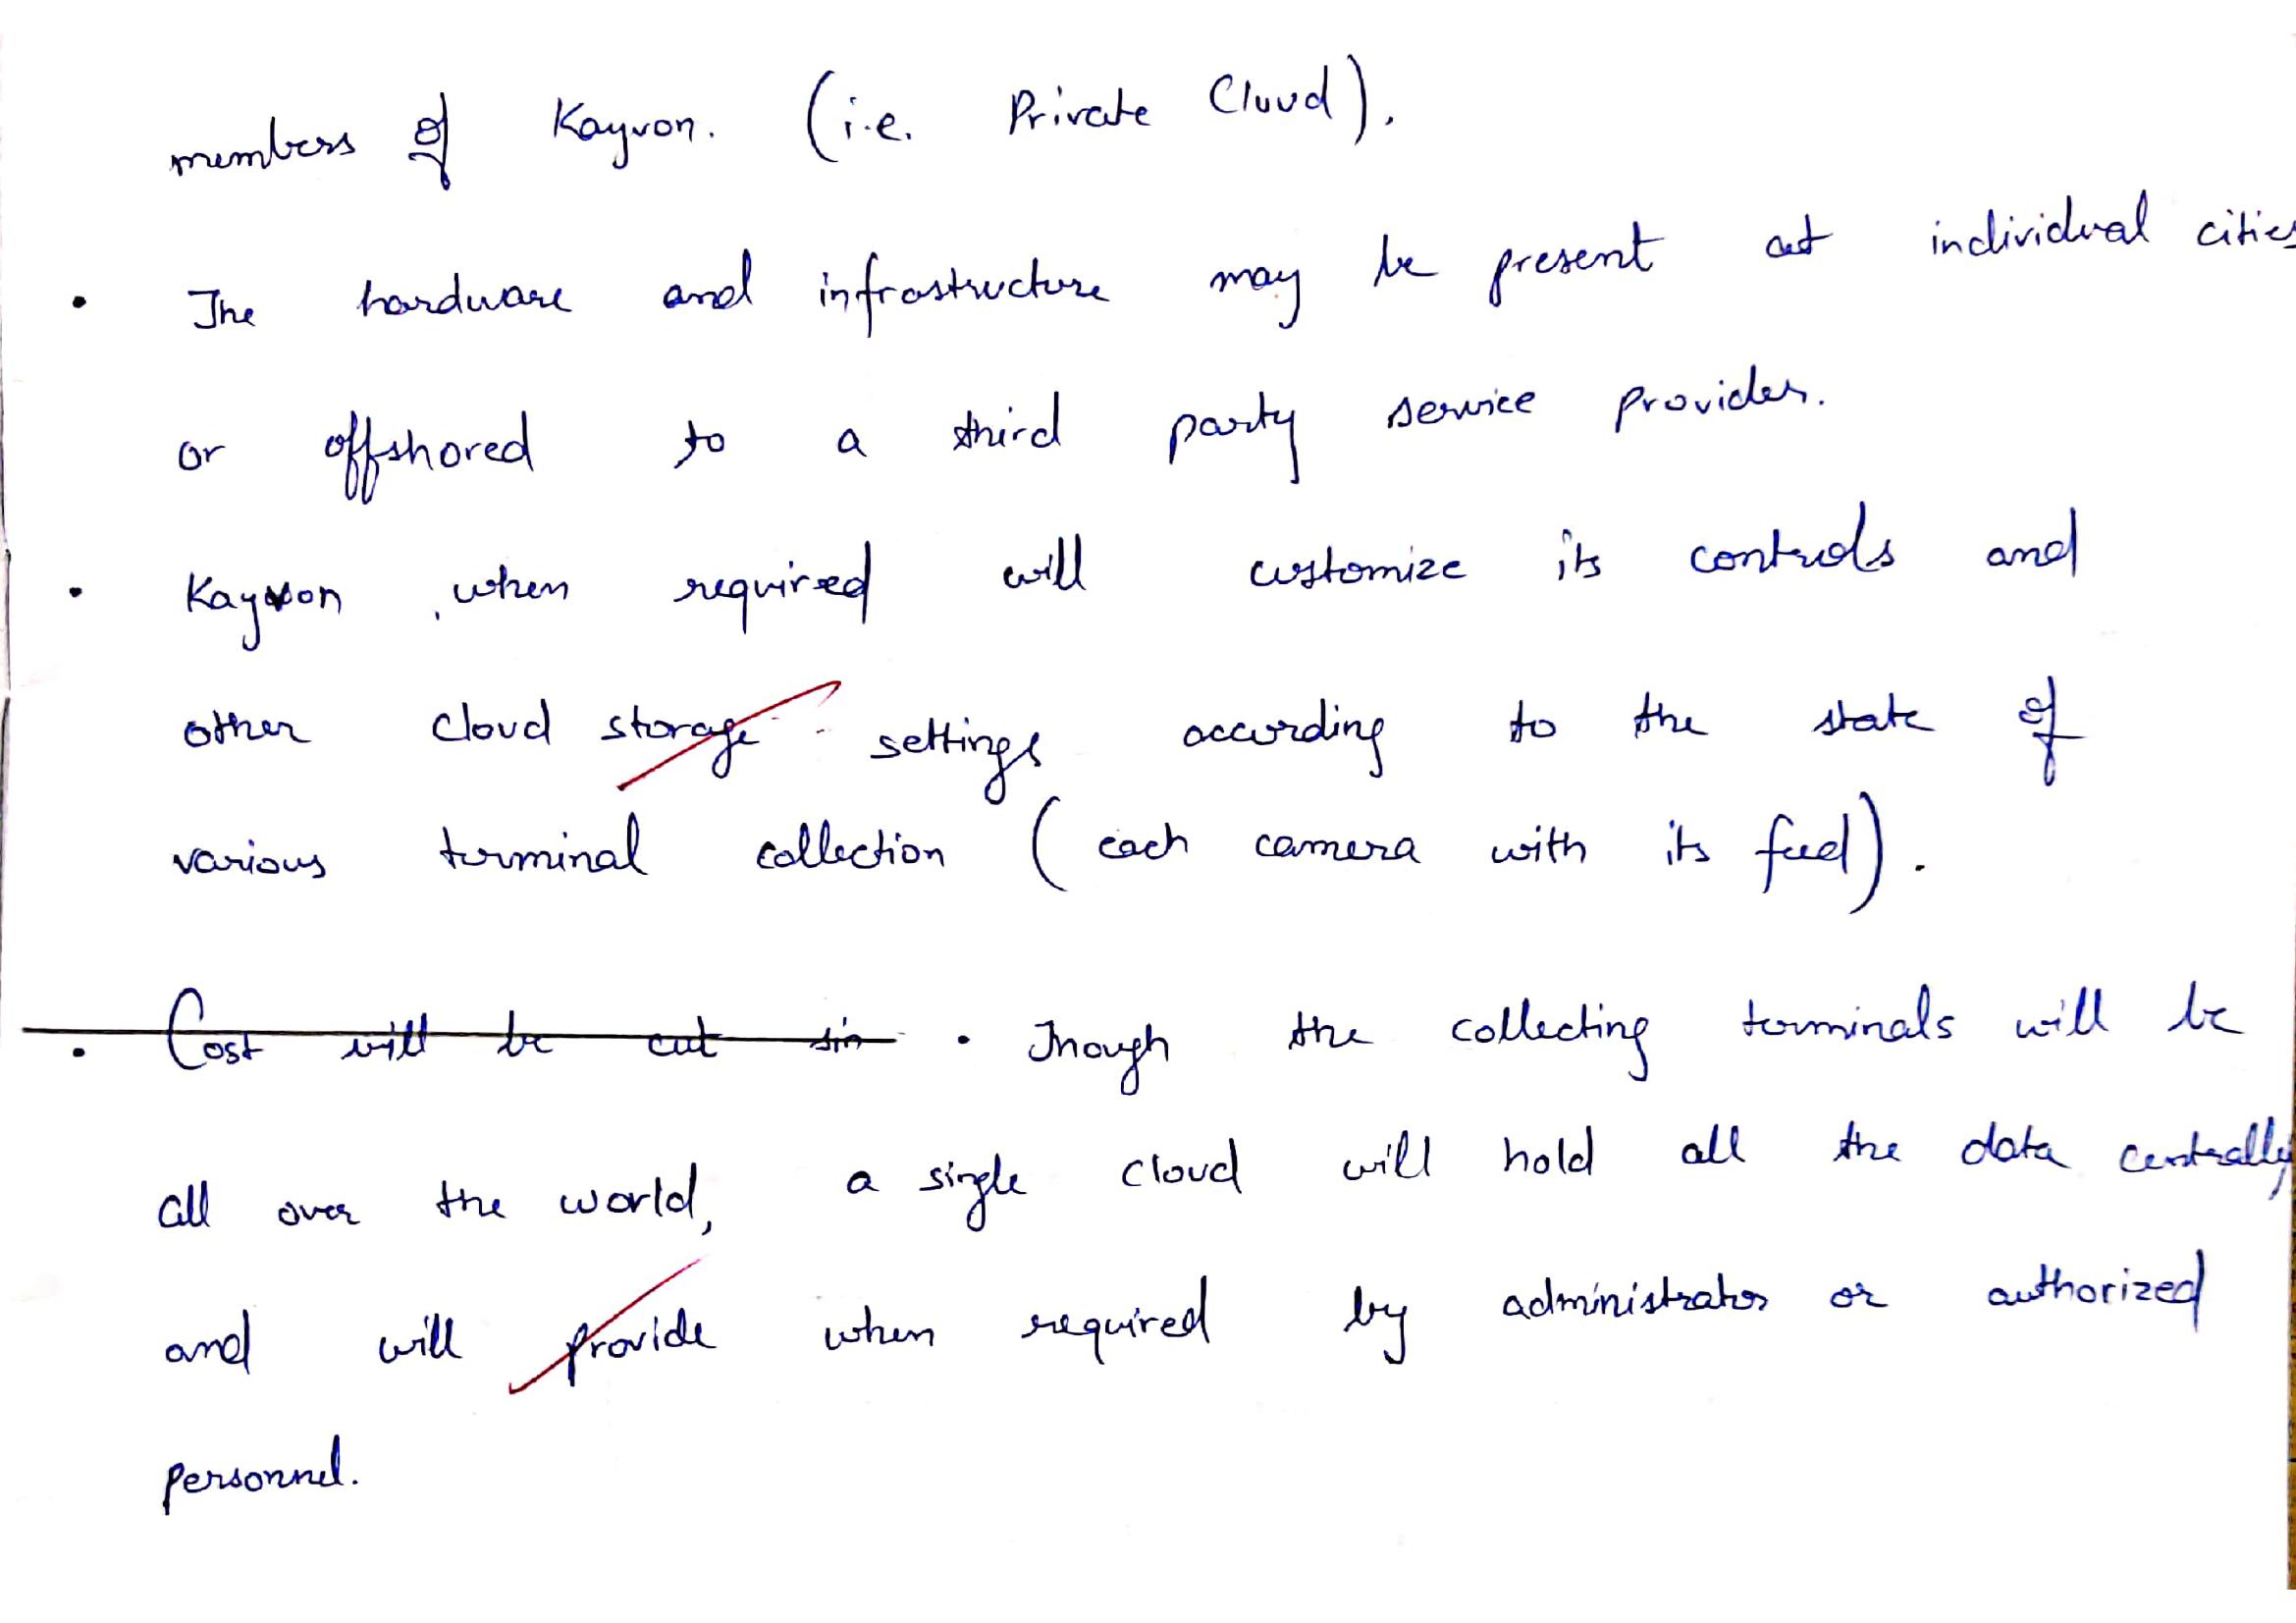 members of Kayvon. (i.e. Private Cloud).
• The hardware and infrastructure may be present at individual cities
or offshored to a third party service provider.
• Kayvon, when required will customize its controls and
other cloud storage settings according to the state of
various terminal collection (each camera with its feed).
• Cost will be cut sin • Though the collecting terminals will be
all over the world, a single cloud will hold all the data centrally
and will provide when required by administrator or authorized
personnel.